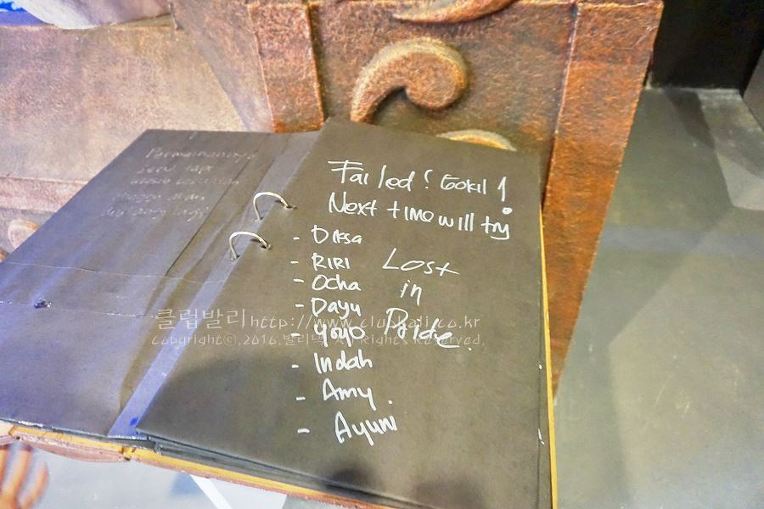 Permainannya
seru tapi
Failed! Gokil!
Next time will try
- Diksa
- RIRI
- Ocha
- Dayu
- Yoyo
- Indah
- Amy.
- Ayum
Lost
in
Pride.
클럽발리 http://www.clubbali.co.kr
Copyright©,2016,발리 All Rights Reserved.